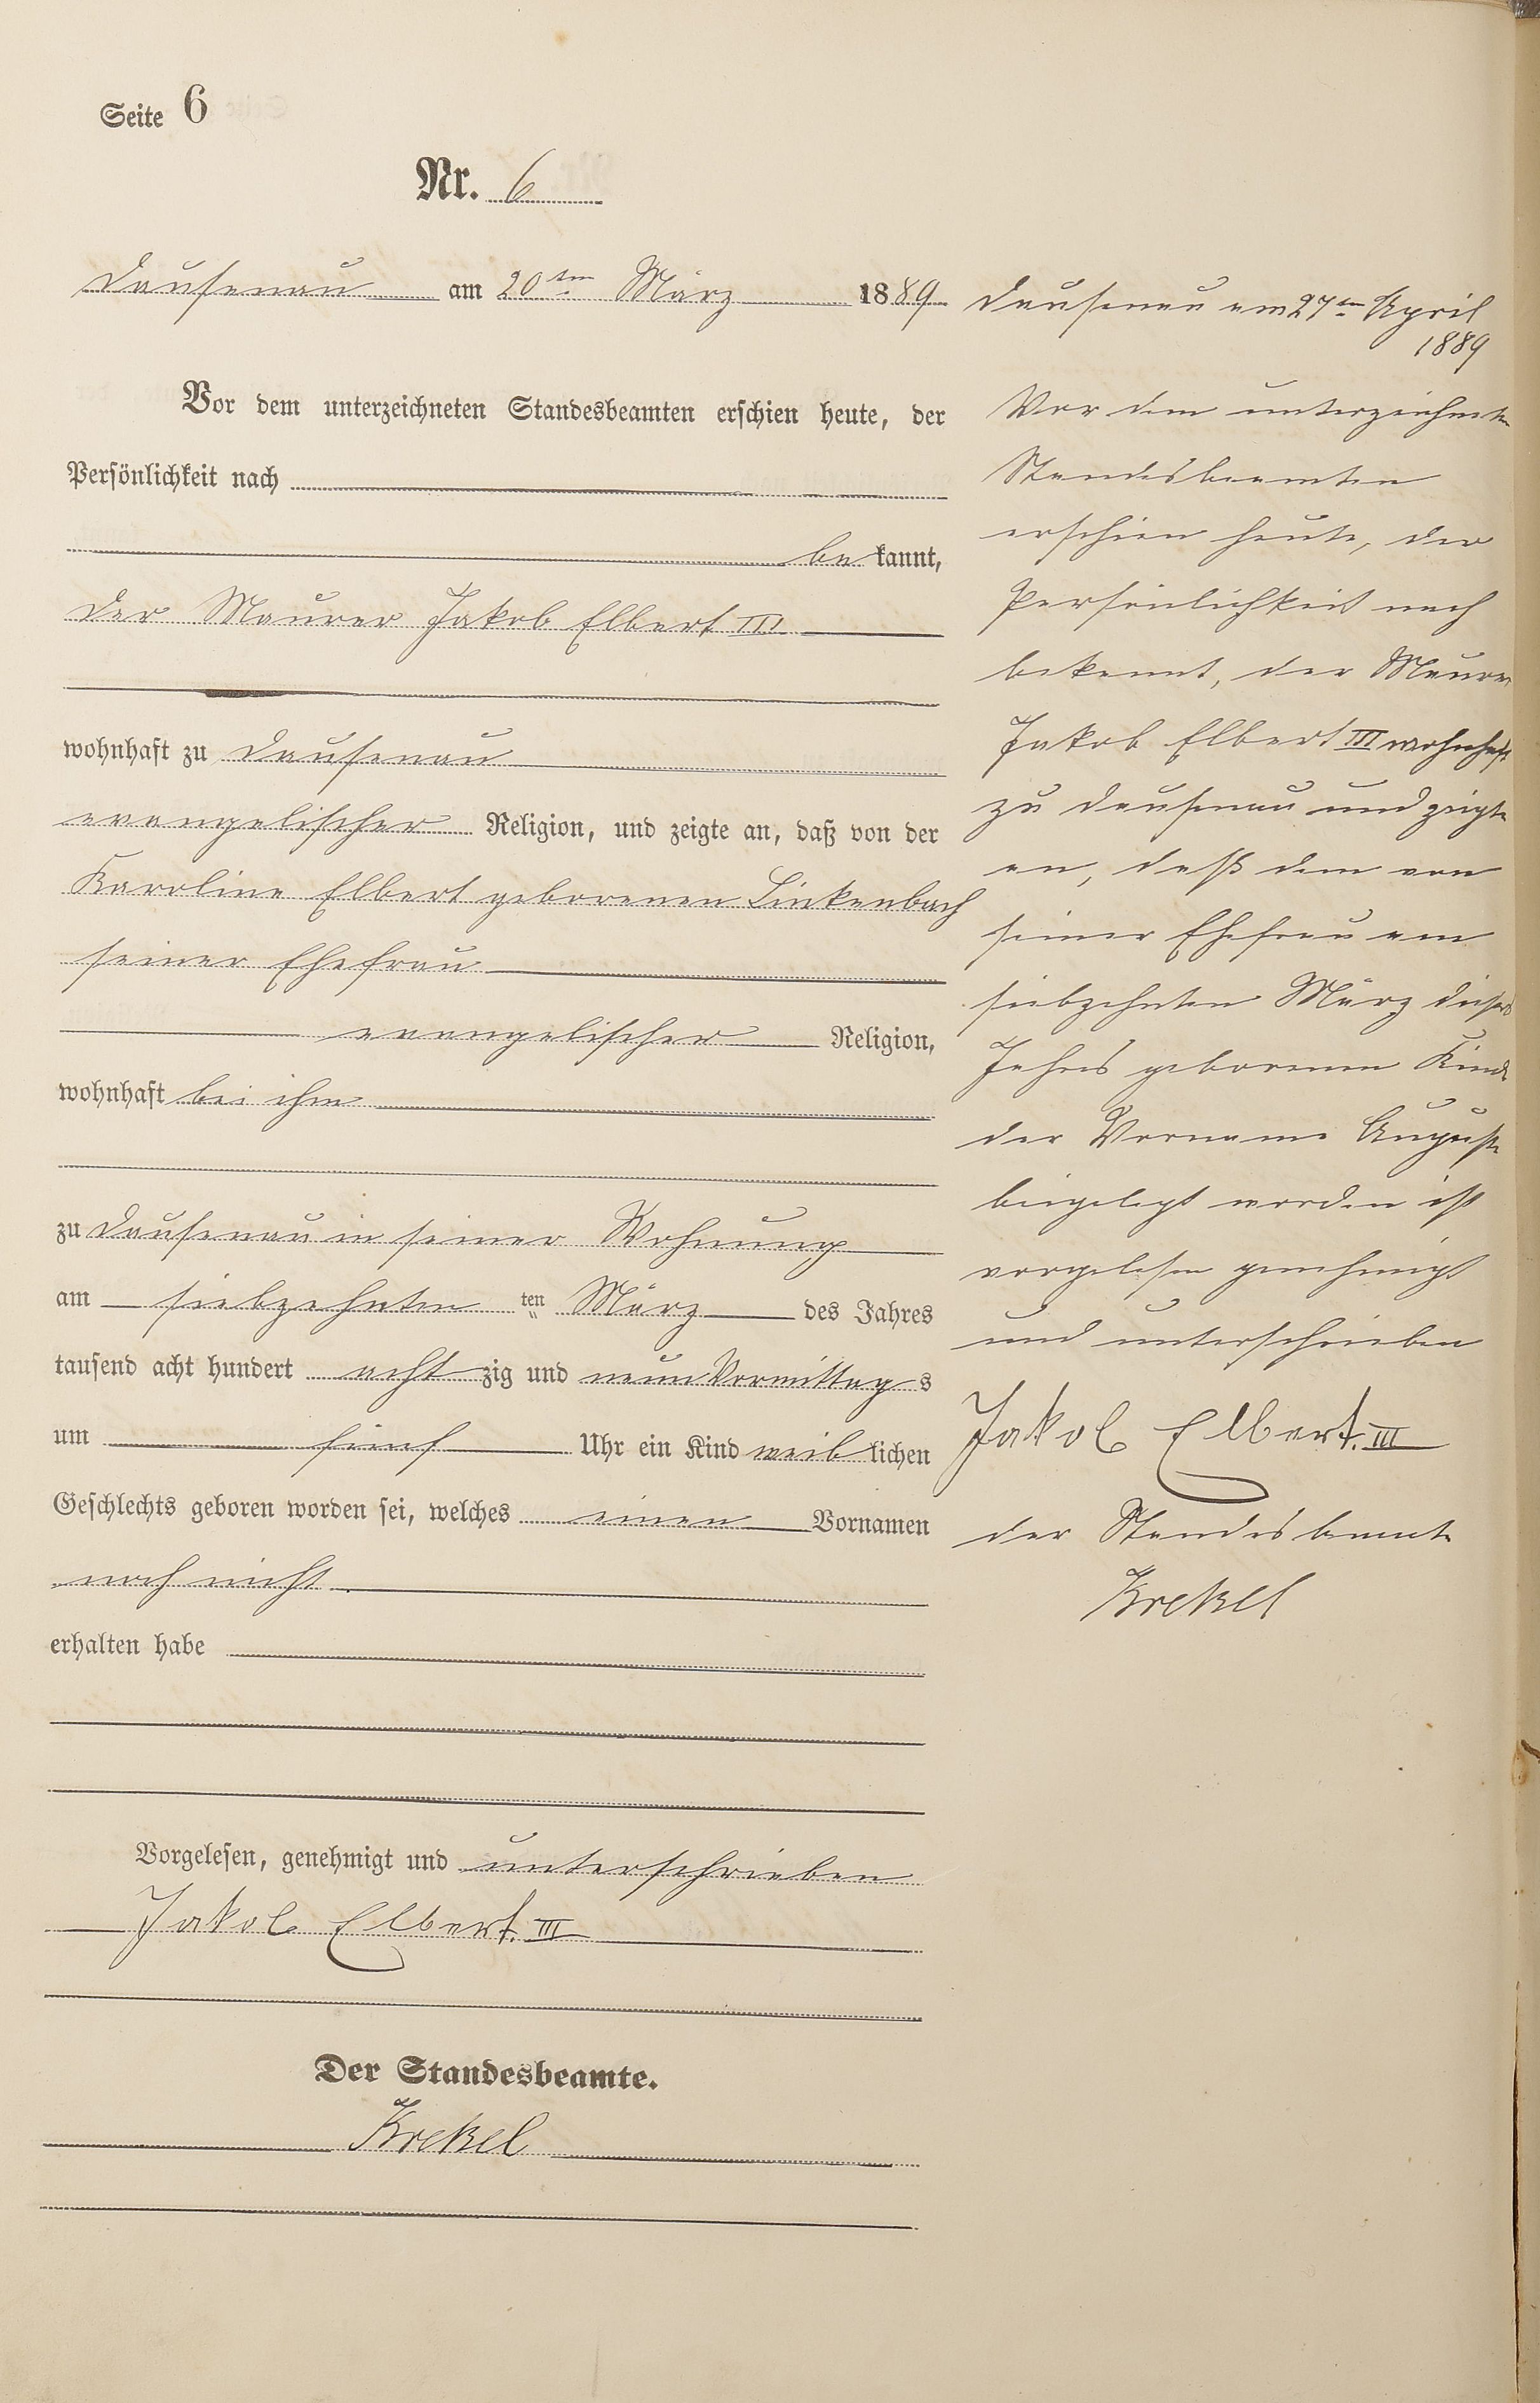 Seite 6
Nr. 6
Dausenau am 20ten März 1889
Vor dem unterzeichneten Standesbeamten erschien heute, der
Persönlichkeit nach
be kannt,
der Maurer Jakob Elbert III
wohnhaft zu Dausenau
evangelischer Religion, und zeigte an, daß von der
Karoline Elbert geborenen Linkenbach
seiner Ehefrau
evangelischer Religion,
wohnhaft bei ihm
zu Dausenau in seiner Wohnung
am siebzehnten ten März des Jahres
tausend acht hundert acht zig und neun Vormittag s
um fünf Uhr ein Kind weib lichen
Geschlechts geboren worden sei, welches einen Vornamen
noch nicht
erhalten habe
Vorgelesen, genehmigt und unterschrieben
Jakob Elbert. III
Der Standesbeamte.
Krekel
Dausenau am 27ten April
1889
Vor dem unterzeichneten
Standesbeamten
erschien heute, der
Persönlichkeit nach
bekannt, der Maurer
Jakob Elbert III wohnhaft
zu Dausenau und zeigte
an, daß dem von
seiner Ehefrau am
siebzehnten März dieses
Jahres geborenen Kinde
der Vorname Auguste
beigelegt worden ist
vorgelesen genehmigt
und unterschrieben
Jakob Elbert. III
der Standesbeamte
Krekel